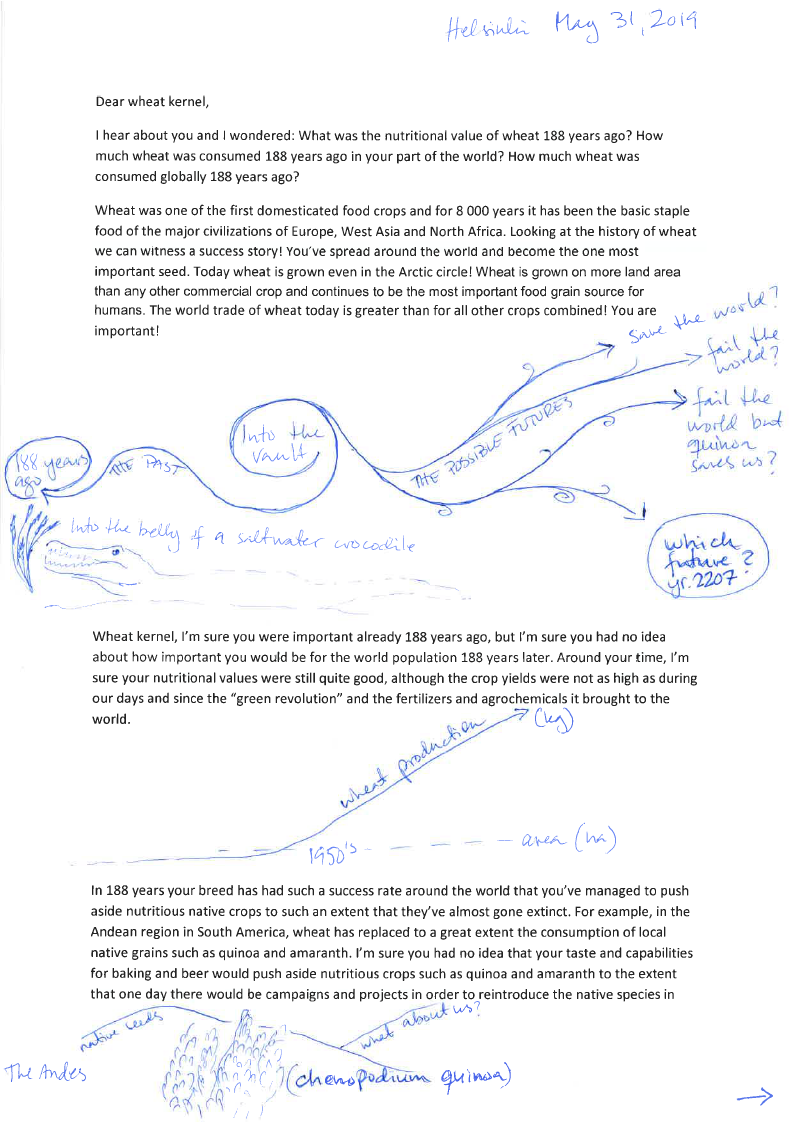 Helsinki May 31, 2019
Dear wheat kernel,
I hear about you and I wondered: What was the nutritional value of wheat 188 years ago? How
much wheat was consumed 188 years ago in your part of the world? How much wheat was
consumed globally 188 years ago?
Wheat was one of the first domesticated food crops and for 8 000 years it has been the basic staple
food of the major civilizations of Europe, West Asia and North Africa. Looking at the history of wheat
we can witness a success story! You've spread around the world and become the one most
important seed. Today wheat is grown even in the Arctic circle! Wheat is grown on more land area
than any other commercial crop and continues to be the most important food grain source for
humans. The world trade of wheat today is greater than for all other crops combined! You are
important!
save the world?
fail the
world?
fail the
world but
quinoa
saves us?
THE POSSIBLE FUTURES
Into the
vault
THE PAST
188 years
ago
Into the belly of a saltwater crocodile
which
future?
yr. 2207
Wheat kernel, I'm sure you were important already 188 years ago, but I'm sure you had no idea
about how important you would be for the world population 188 years later. Around your time, I'm
sure your nutritional values were still quite good, although the crop yields were not as high as during
our days and since the "green revolution" and the fertilizers and agrochemicals it brought to the
world.
wheat production
(kg)
1950's
area (ha)
In 188 years your breed has had such a success rate around the world that you've managed to push
aside nutritious native crops to such an extent that they've almost gone extinct. For example, in the
Andean region in South America, wheat has replaced to a great extent the consumption of local
native grains such as quinoa and amaranth. I'm sure you had no idea that your taste and capabilities
for baking and beer would push aside nutritious crops such as quinoa and amaranth to the extent
that one day there would be campaigns and projects in order to reintroduce the native species in
native seeds
what about us?
The Andes
(chenopodium quinoa)